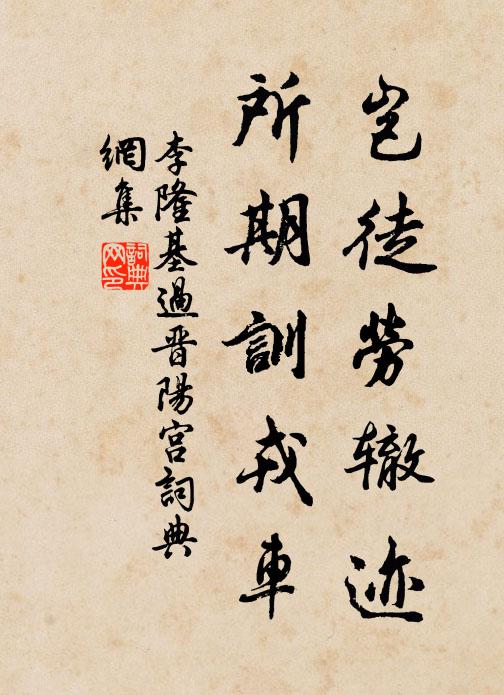 岂徒勞辙迹
所期訓戎車
李隆基過晋陽宫詞典
網集
詞典
网印